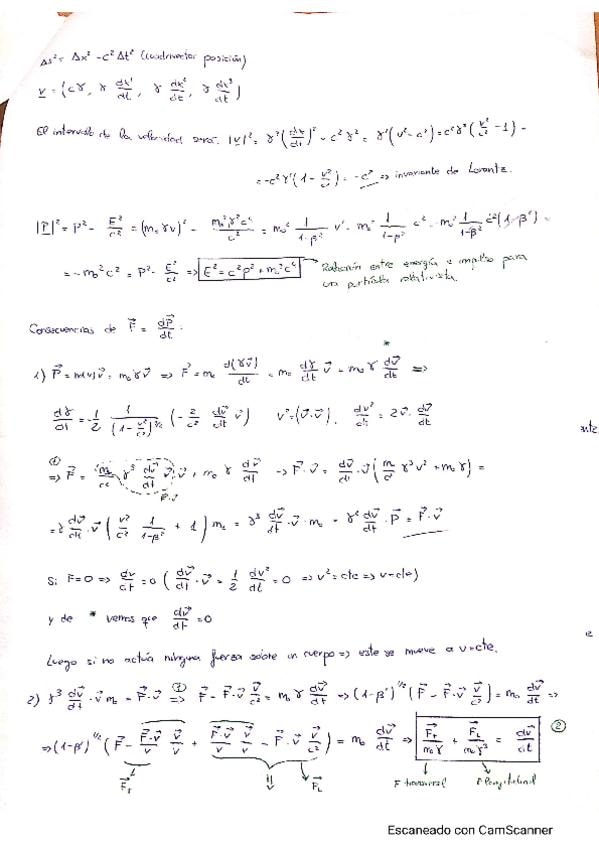 Δs² = Δx² - c²Δt² (cuadrivector posición)
v = (cγ, γ dx¹/dt, γ dx²/dt, γ dx³/dt)
El intervalo de la velocidad será: |v|² = γ²(dx/dt)² - c²γ² = γ²(v² - c²) = c²γ²(v²/c² - 1) =
= -c²γ²(1 - v²/c²) = -c² => invariante de Lorentz.
|P|² = P² - E²/c² = (m₀γv)² - m₀²γ²c⁴/c² = m₀² 1/(1-β²) v² - m₀² 1/(1-β²) c² = -m₀² 1/(1-β²) c²(1-β²) =
= -m₀²c² = P² - E²/c² => E² = c²p² + m₀²c⁴ Relación entre energía e impulso para
una partícula relativista.
Consecuencias de F = dP/dt.
1) P = m(v)v = m₀γv => F = m₀ d(γv)/dt = m₀ dγ/dt v + m₀γ dv/dt * =>
dγ/dt = -1/2 1/(1-v²/c²)^3/2 (-2/c² dv/dt v) v² = (v·v), dv²/dt = 2v·dv/dt
① => F = m₀/c² γ³ dv/dt·v·v + m₀γ dv/dt -> F·v = dv/dt·v(m₀/c² γ³v² + m₀γ) =
= γ dv/dt·v (v²/c² 1/(1-β²) + 1) m₀ = γ³ dv/dt·v·m₀ = γ² dv/dt·P = F·v
Si F=0 => dv/dt = 0 (dv/dt·v = 1/2 dv²/dt = 0 => v² = cte => v=cte)
y de * vemos que dv/dt = 0
Luego si no actúa ninguna fuerza sobre un cuerpo => este se mueve a v=cte.
2) γ³ dv/dt·v m₀ = F·v ① => F - F·v v/c² = m₀γ dv/dt => (1-β²)^1/2 (F - F·v v/c²) = m₀ dv/dt =>
=> (1-β²)^1/2 (F - F·v/v v/v + F·v/v v/v - F·v v/c²) = m₀ dv/dt => F_T/m₀γ + F_L/m₀γ³ = dv/dt ②
F_T F_L F transversal F longitudinal
Escaneado con CamScanner